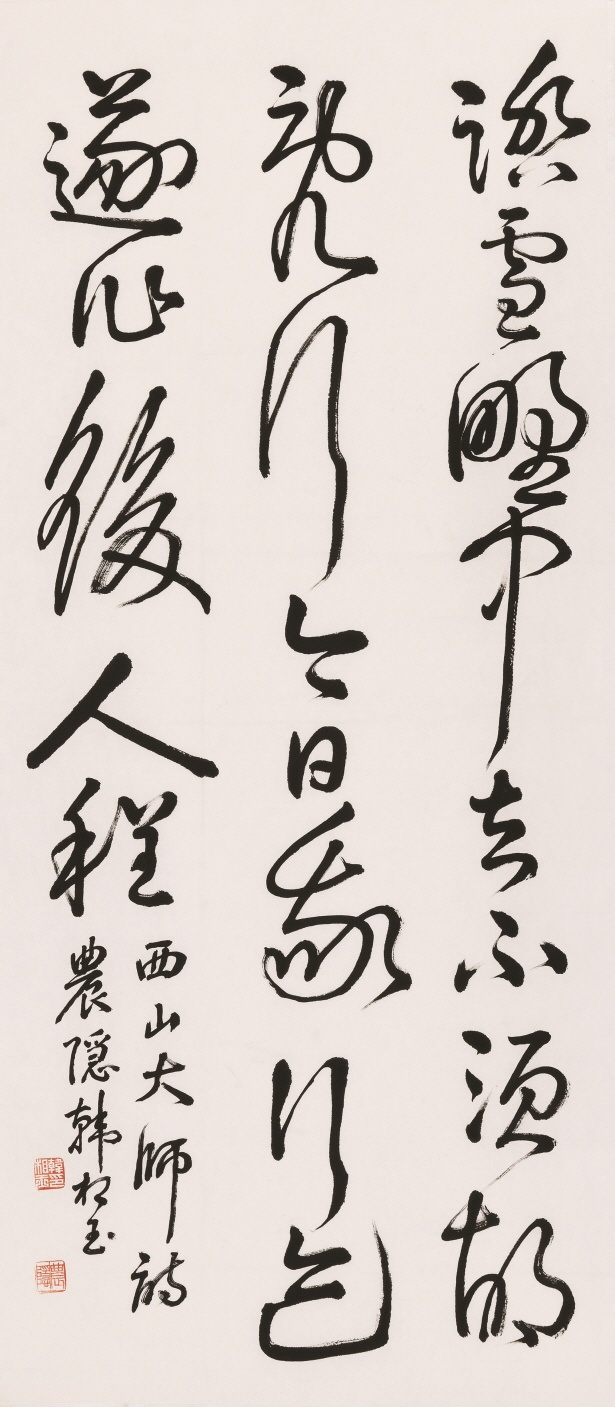 踏雪野中去不須胡
亂行今日我行迹
遂作後人程
西山大師詩
農隱韓相玉